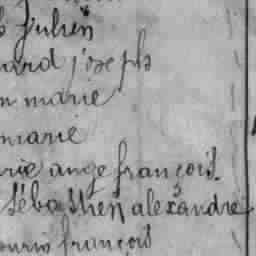 Julien
joseph
marie
marie
ange françois.
sébasthien alexandre
françois